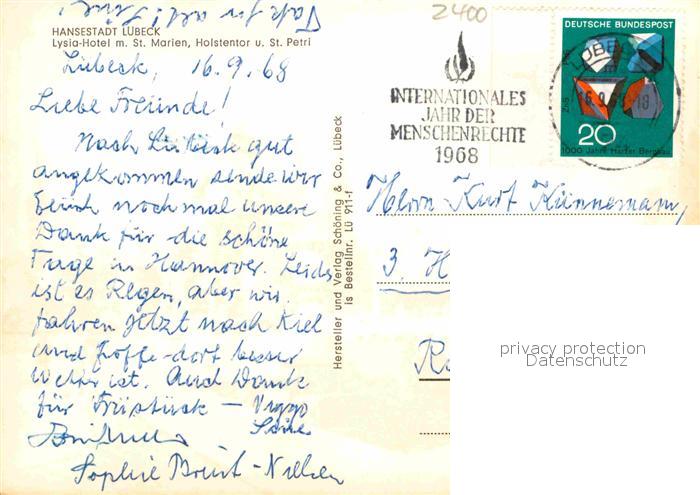 Tak for alt!
HANSESTADT LÜBECK
Lysia-Hotel m. St. Marien, Holstentor u. St. Petri
Lübeck, 16.9.68
Liebe Freunde!
Nach Lübeck gut
angekommen sende wir
Euch nochmal unsere
Dank für die schöne
Tage in Hannover. Leider
ist es Regen, aber wir
fahren jetzt nach Kiel
und hoffe dort besser
Wetter ist. Auch Danke
für Früstück — Viggo
Sophie Bruut-Nielsen
Hersteller und Verlag Schöning & Co., Lübeck
is Bestellnr. Lü 911-f
2400
INTERNATIONALES
JAHR DER
MENSCHENRECHTE
1968
DEUTSCHE BUNDESPOST
ZnS
LÜBECK
20
1000 Jahre Harzer Bergbau
Herrn Kurt Künnemann,
3. H
privacy protection
Datenschutz